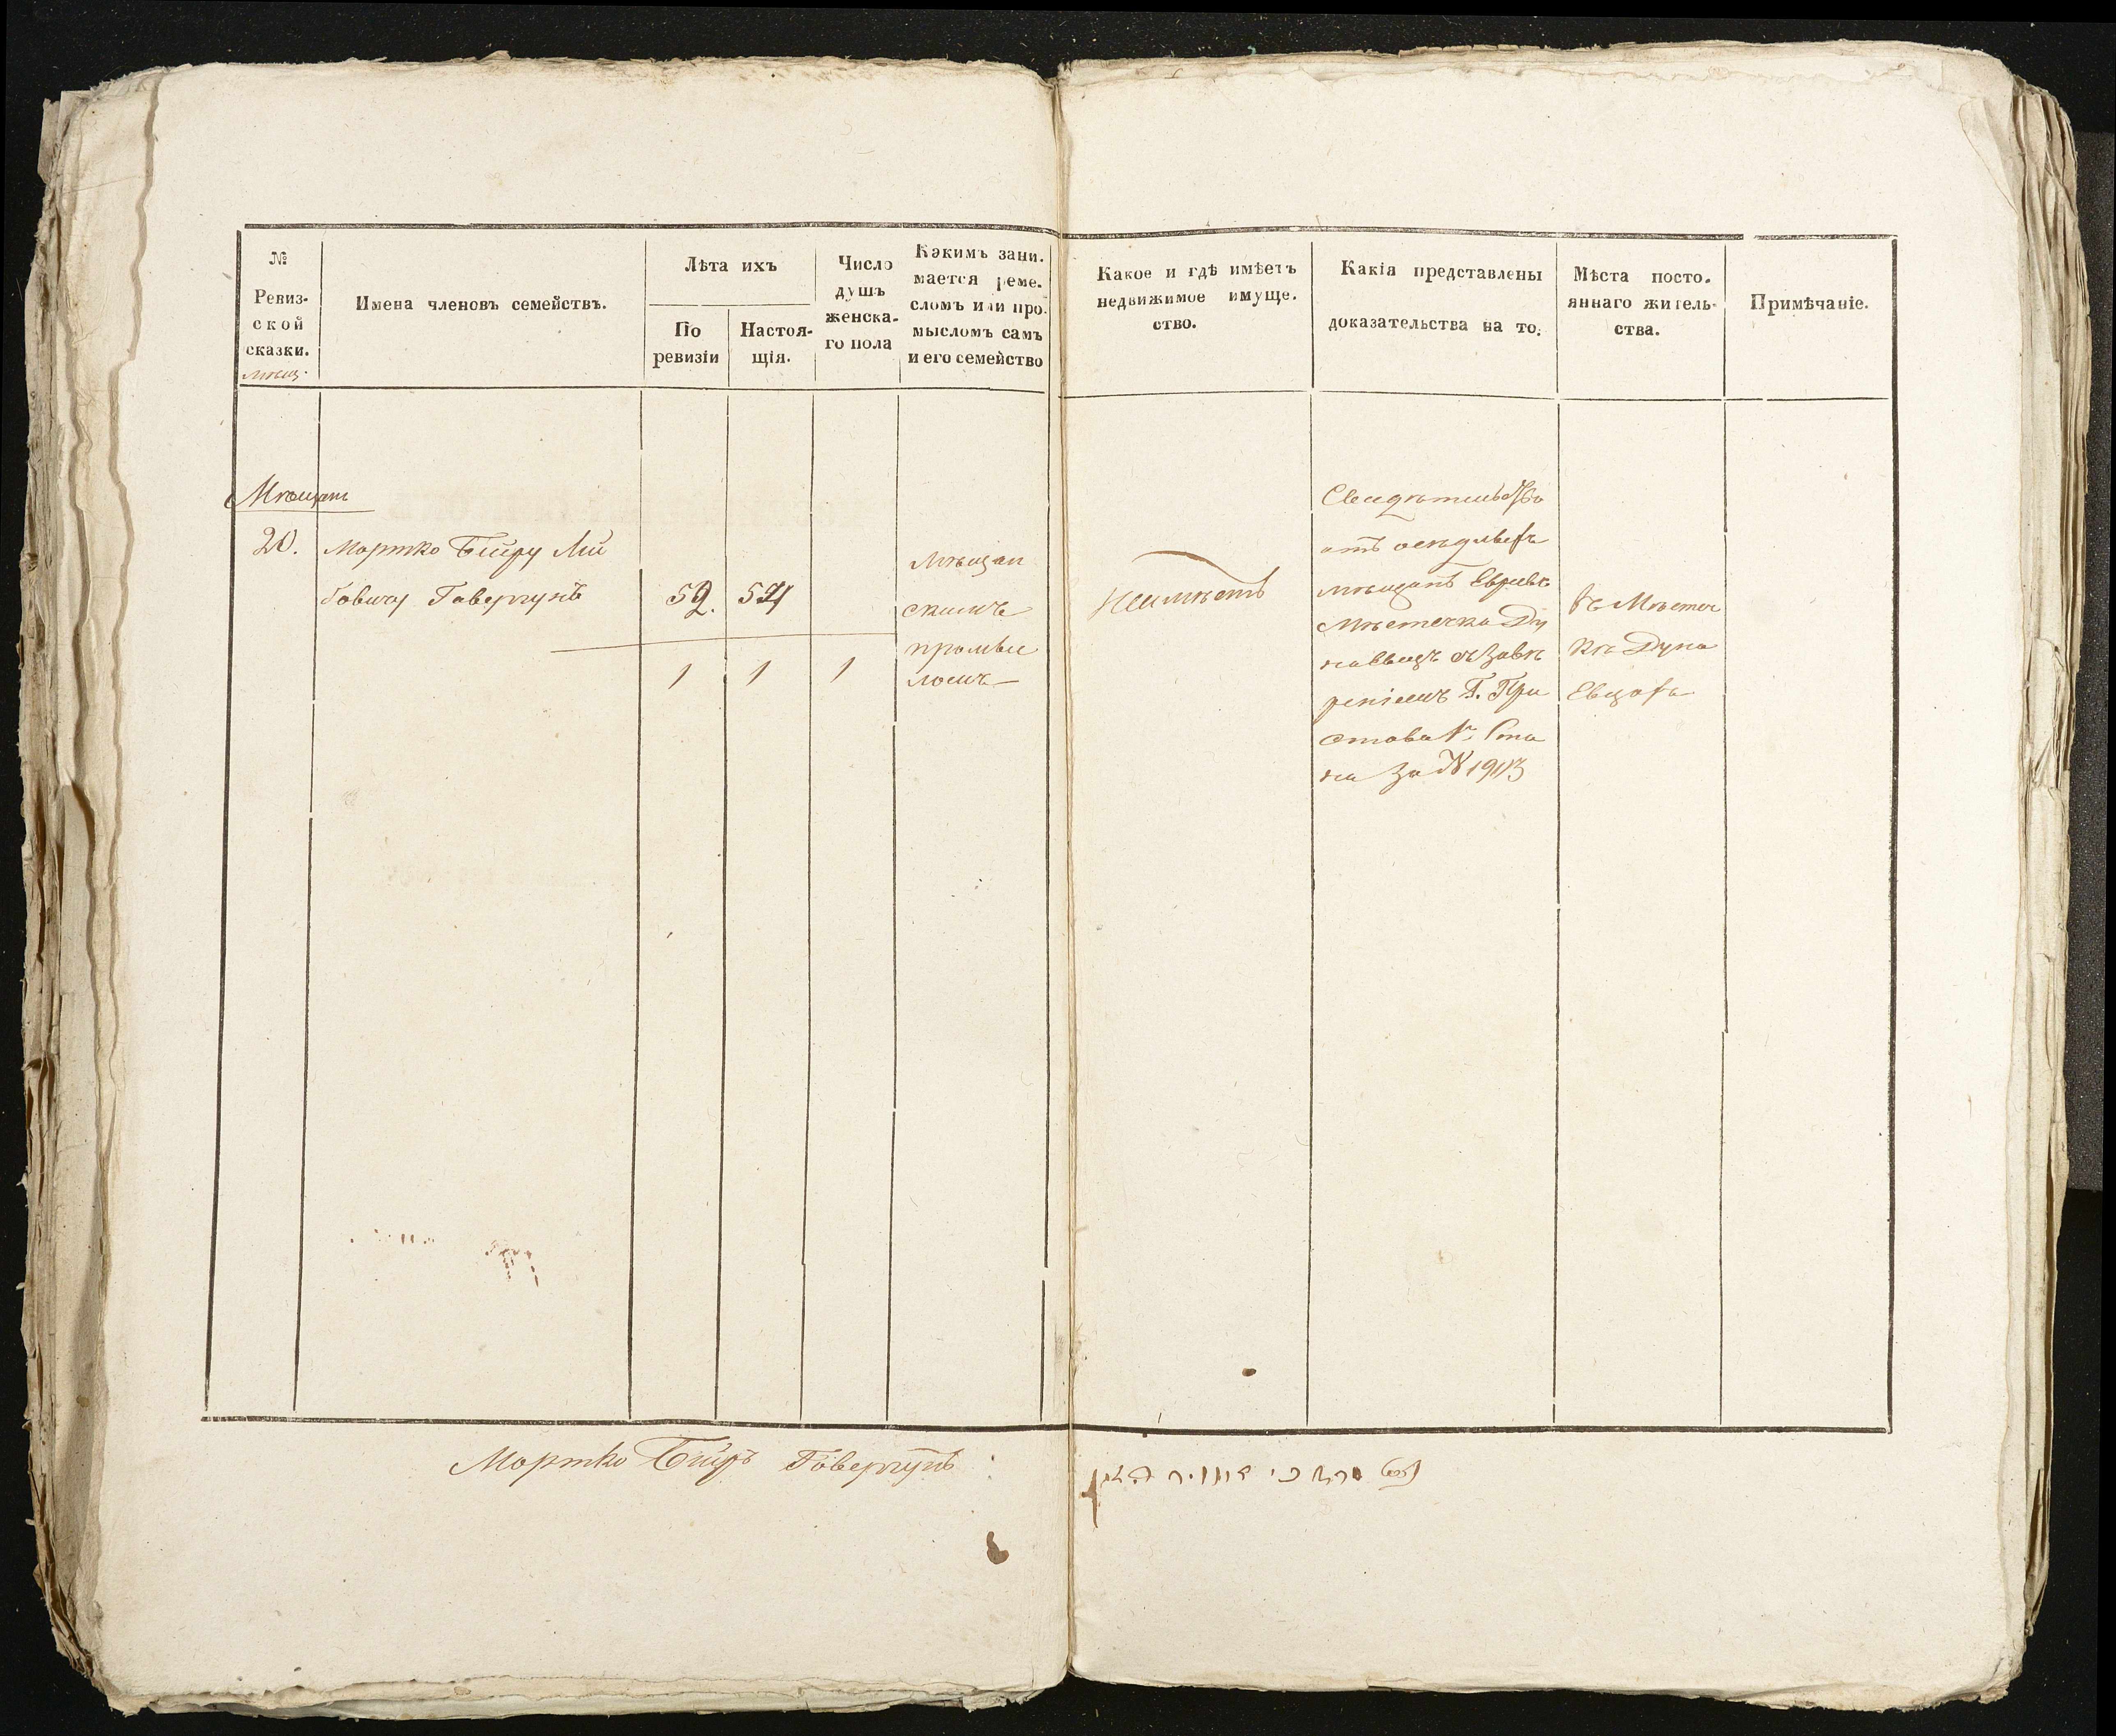 №
Ревиз-
ской
сказки.
мѣщ.
Имена членовъ семействъ.
Лѣта ихъ
По
ревизіи
Настоя-
щія.
Число
душъ
женска-
го пола
Какимъ зани-
мается реме-
сломъ или про-
мысломъ самъ
и его семейство
Какое и гдѣ имѣетъ
недвижимое имуще-
ство.
Какія представлены
доказательства на то.
Мѣста посто-
яннаго житель-
ства.
Примѣчаніе.
Мѣщане
20.
Мортко Беиръ Лей
бовичъ Говергунъ
52. 54
1 1 1
Мѣщан
скимъ
промыс
ломъ
Неимѣетъ
Свидѣтельство
отъ
мѣщанъ Евреевъ
Мѣстечка Ду
наевецъ
реніемъ Г. При
става 1го Ста
на за №
въ Мѣстеч
кѣ Дуна
Евцахъ
Мортко Беиръ Говергунъ